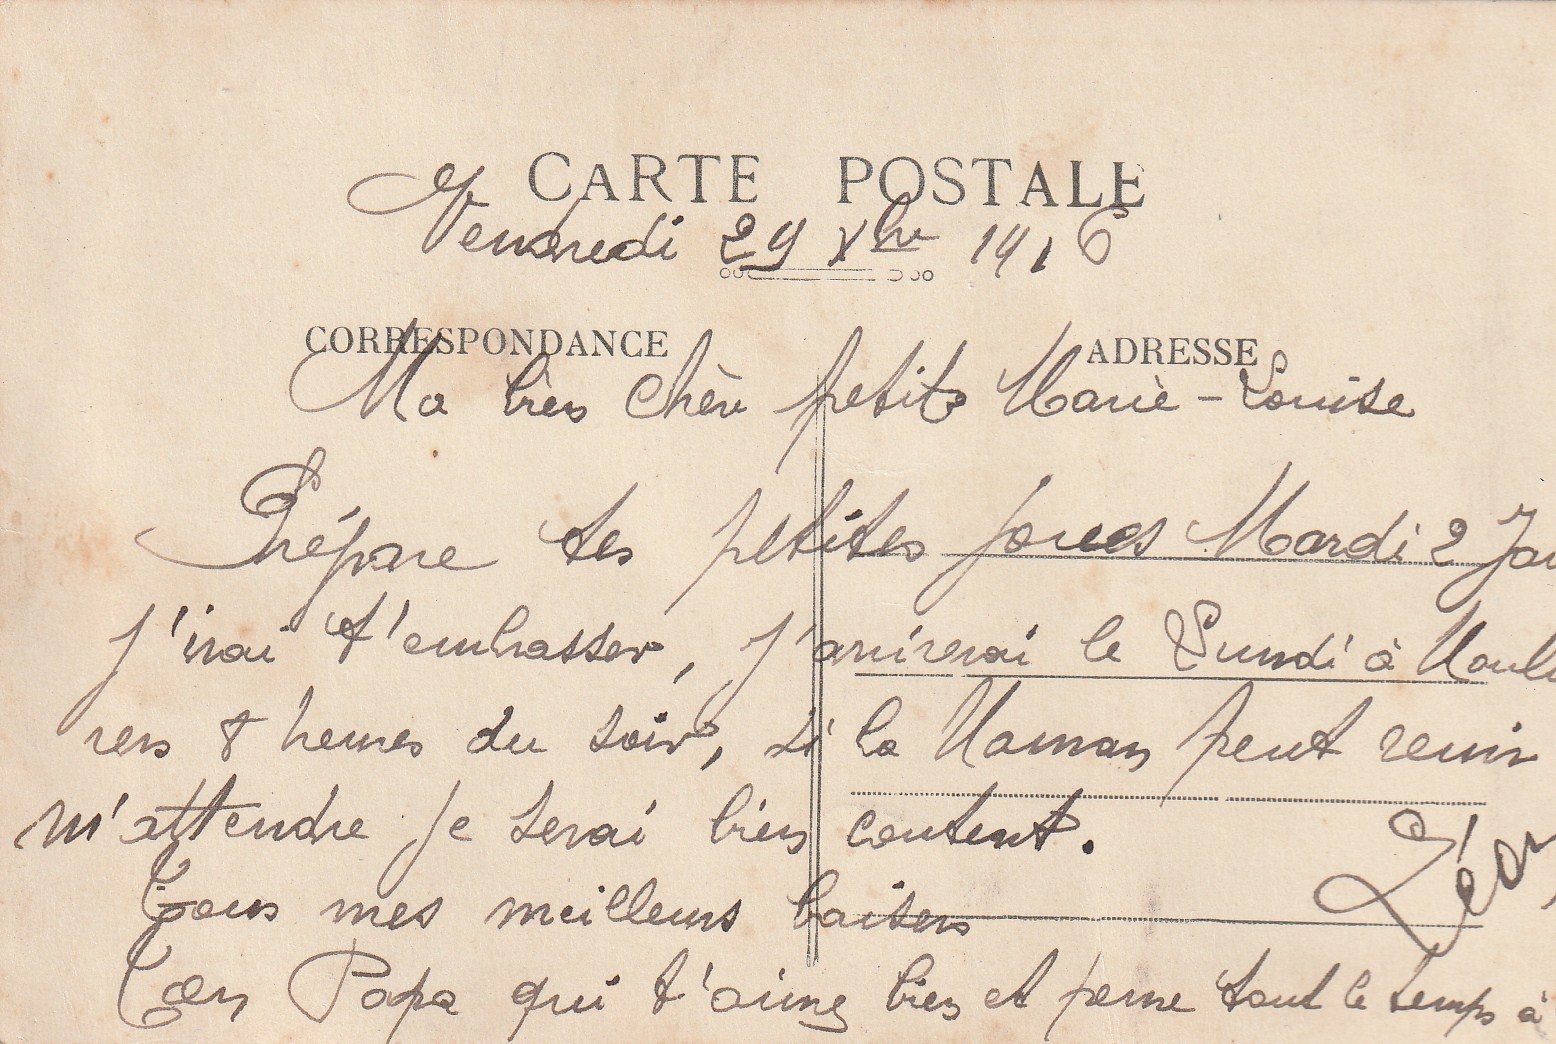 CARTE POSTALE
Vendredi 29 Xbre 1916
CORRESPONDANCE
ADRESSE
Ma bien chère petite Marie-Louise
Prépare tes petites joues Mardi 2 Jan
J'irai t'embrasser, J'arriverai le Lundi à Moul
vers 8 heures du soir, si la Maman peut venir
m'attendre je serai bien content.
Tous mes meilleurs baisers
Léon
Ton Papa qui t'aime bien et pense tout le temps à